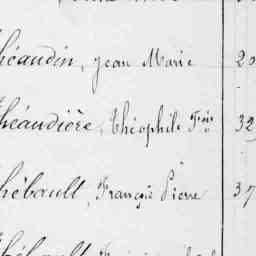 héaudin, Jean Marie 20
héaudière, Théophile Frçs 32
hébault, François Pierre 37
hébault,